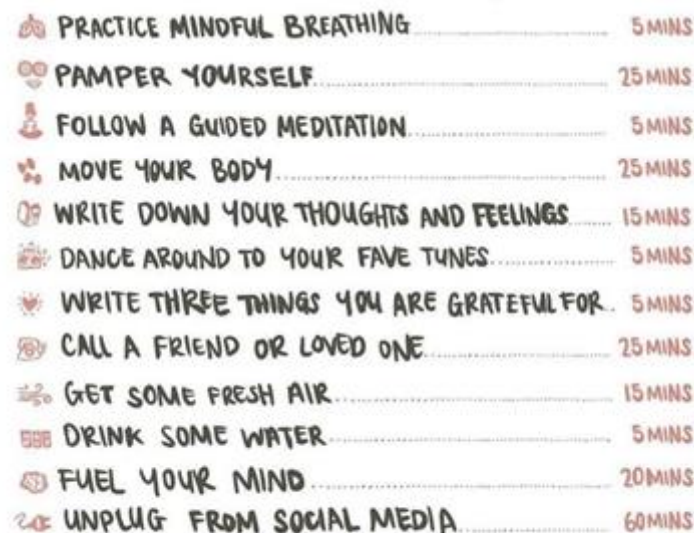 PRACTICE MINDFUL BREATHING 5 MINS
PAMPER YOURSELF 25 MINS
FOLLOW A GUIDED MEDITATION 5 MINS
MOVE YOUR BODY 25 MINS
WRITE DOWN YOUR THOUGHTS AND FEELINGS 15 MINS
DANCE AROUND TO YOUR FAVE TUNES 5 MINS
WRITE THREE THINGS YOU ARE GRATEFUL FOR 5 MINS
CALL A FRIEND OR LOVED ONE 25 MINS
GET SOME FRESH AIR 15 MINS
DRINK SOME WATER 5 MINS
FUEL YOUR MIND 20 MINS
UNPLUG FROM SOCIAL MEDIA 60 MINS